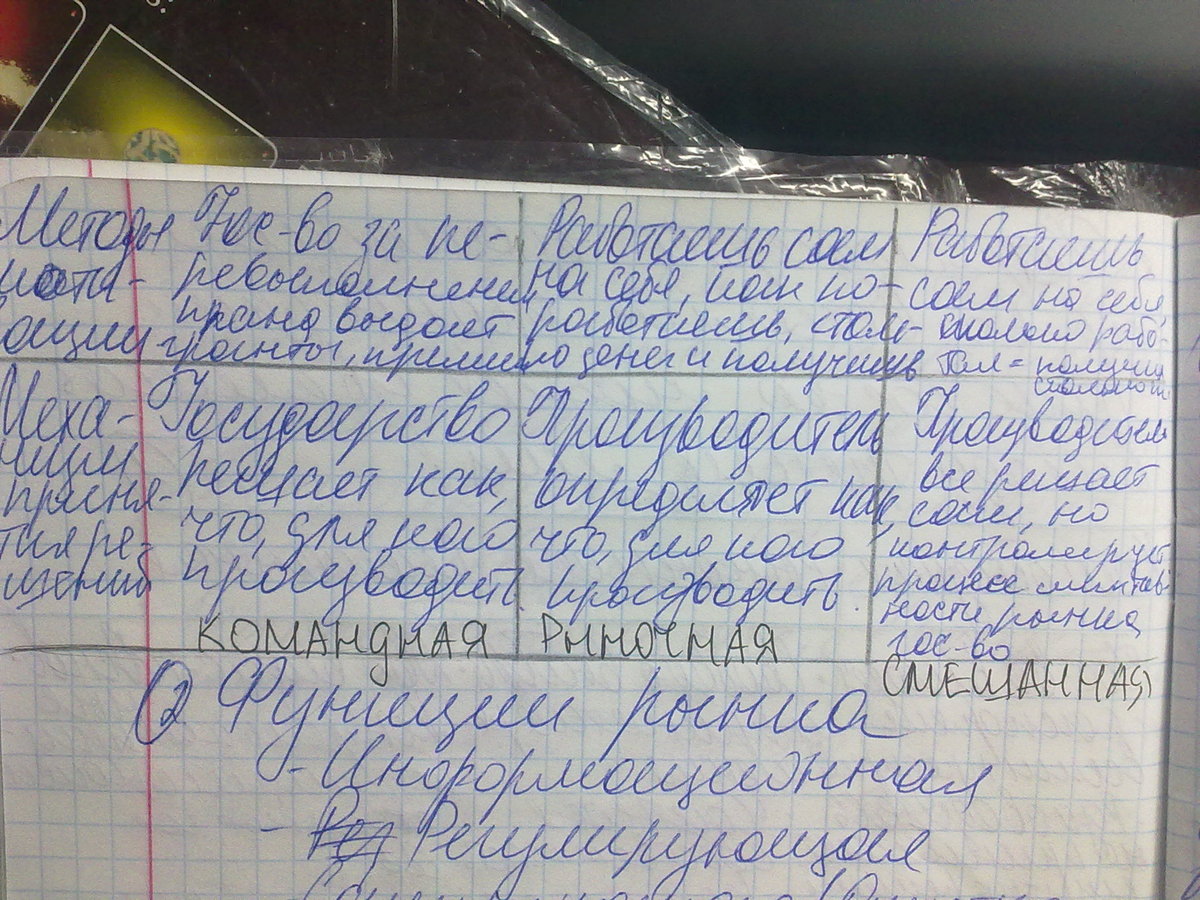 Методы
мотива-
ации
Гос-во за пе-
ревыполнение
плана выдает
гранты, премии
Работаешь сам
на себя, как по-
работаешь, столь-
ко денег и получишь
Работаешь
сам на себя,
сколько рабо-
тал = получил
столько
Меха-
низм
приня-
тия ре-
шений
Государство
решает как,
что, для кого
производить.
Производитель
определяет как,
что, для кого
производить.
Производитель
все решает
сам, но
контролирует
процесс
ности рынка
гос-во
КОМАНДНАЯ
РЫНОЧНАЯ
СМЕШАННАЯ
② Функции рынка
- Информационная
- Регулирующая